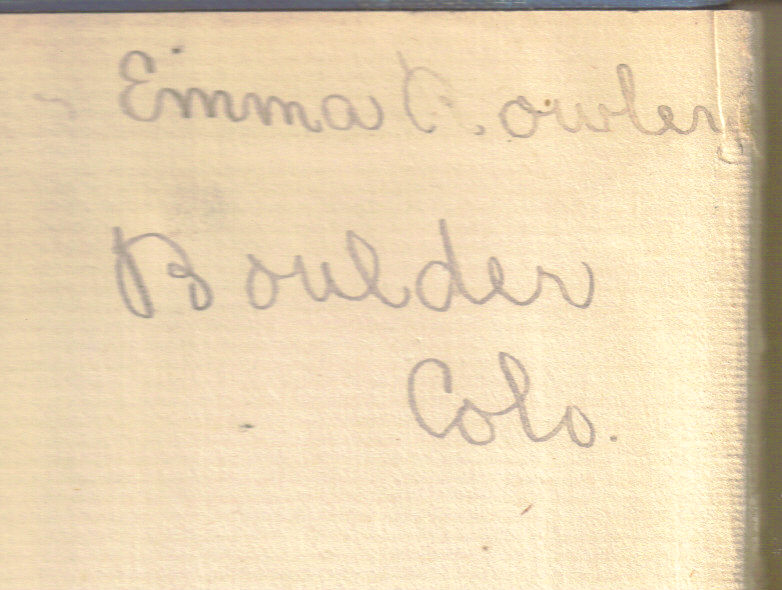 Emma Rowley
Boulder
Colo.